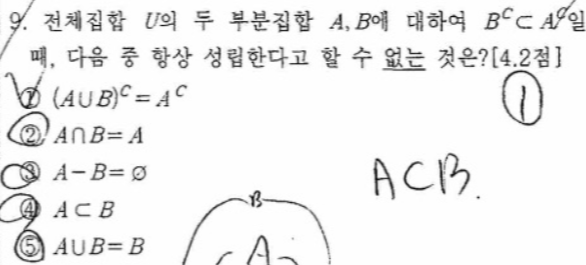 9. 전체집합 U의 두 부분집합 A, B에 대하여 B^C⊂A^C일
때, 다음 중 항상 성립한다고 할 수 없는 것은?[4.2점]
① (A∪B)^C=A^C
①
② A∩B=A
③ A-B=∅
A⊂B.
④ A⊂B
B
⑤ A∪B=B
A